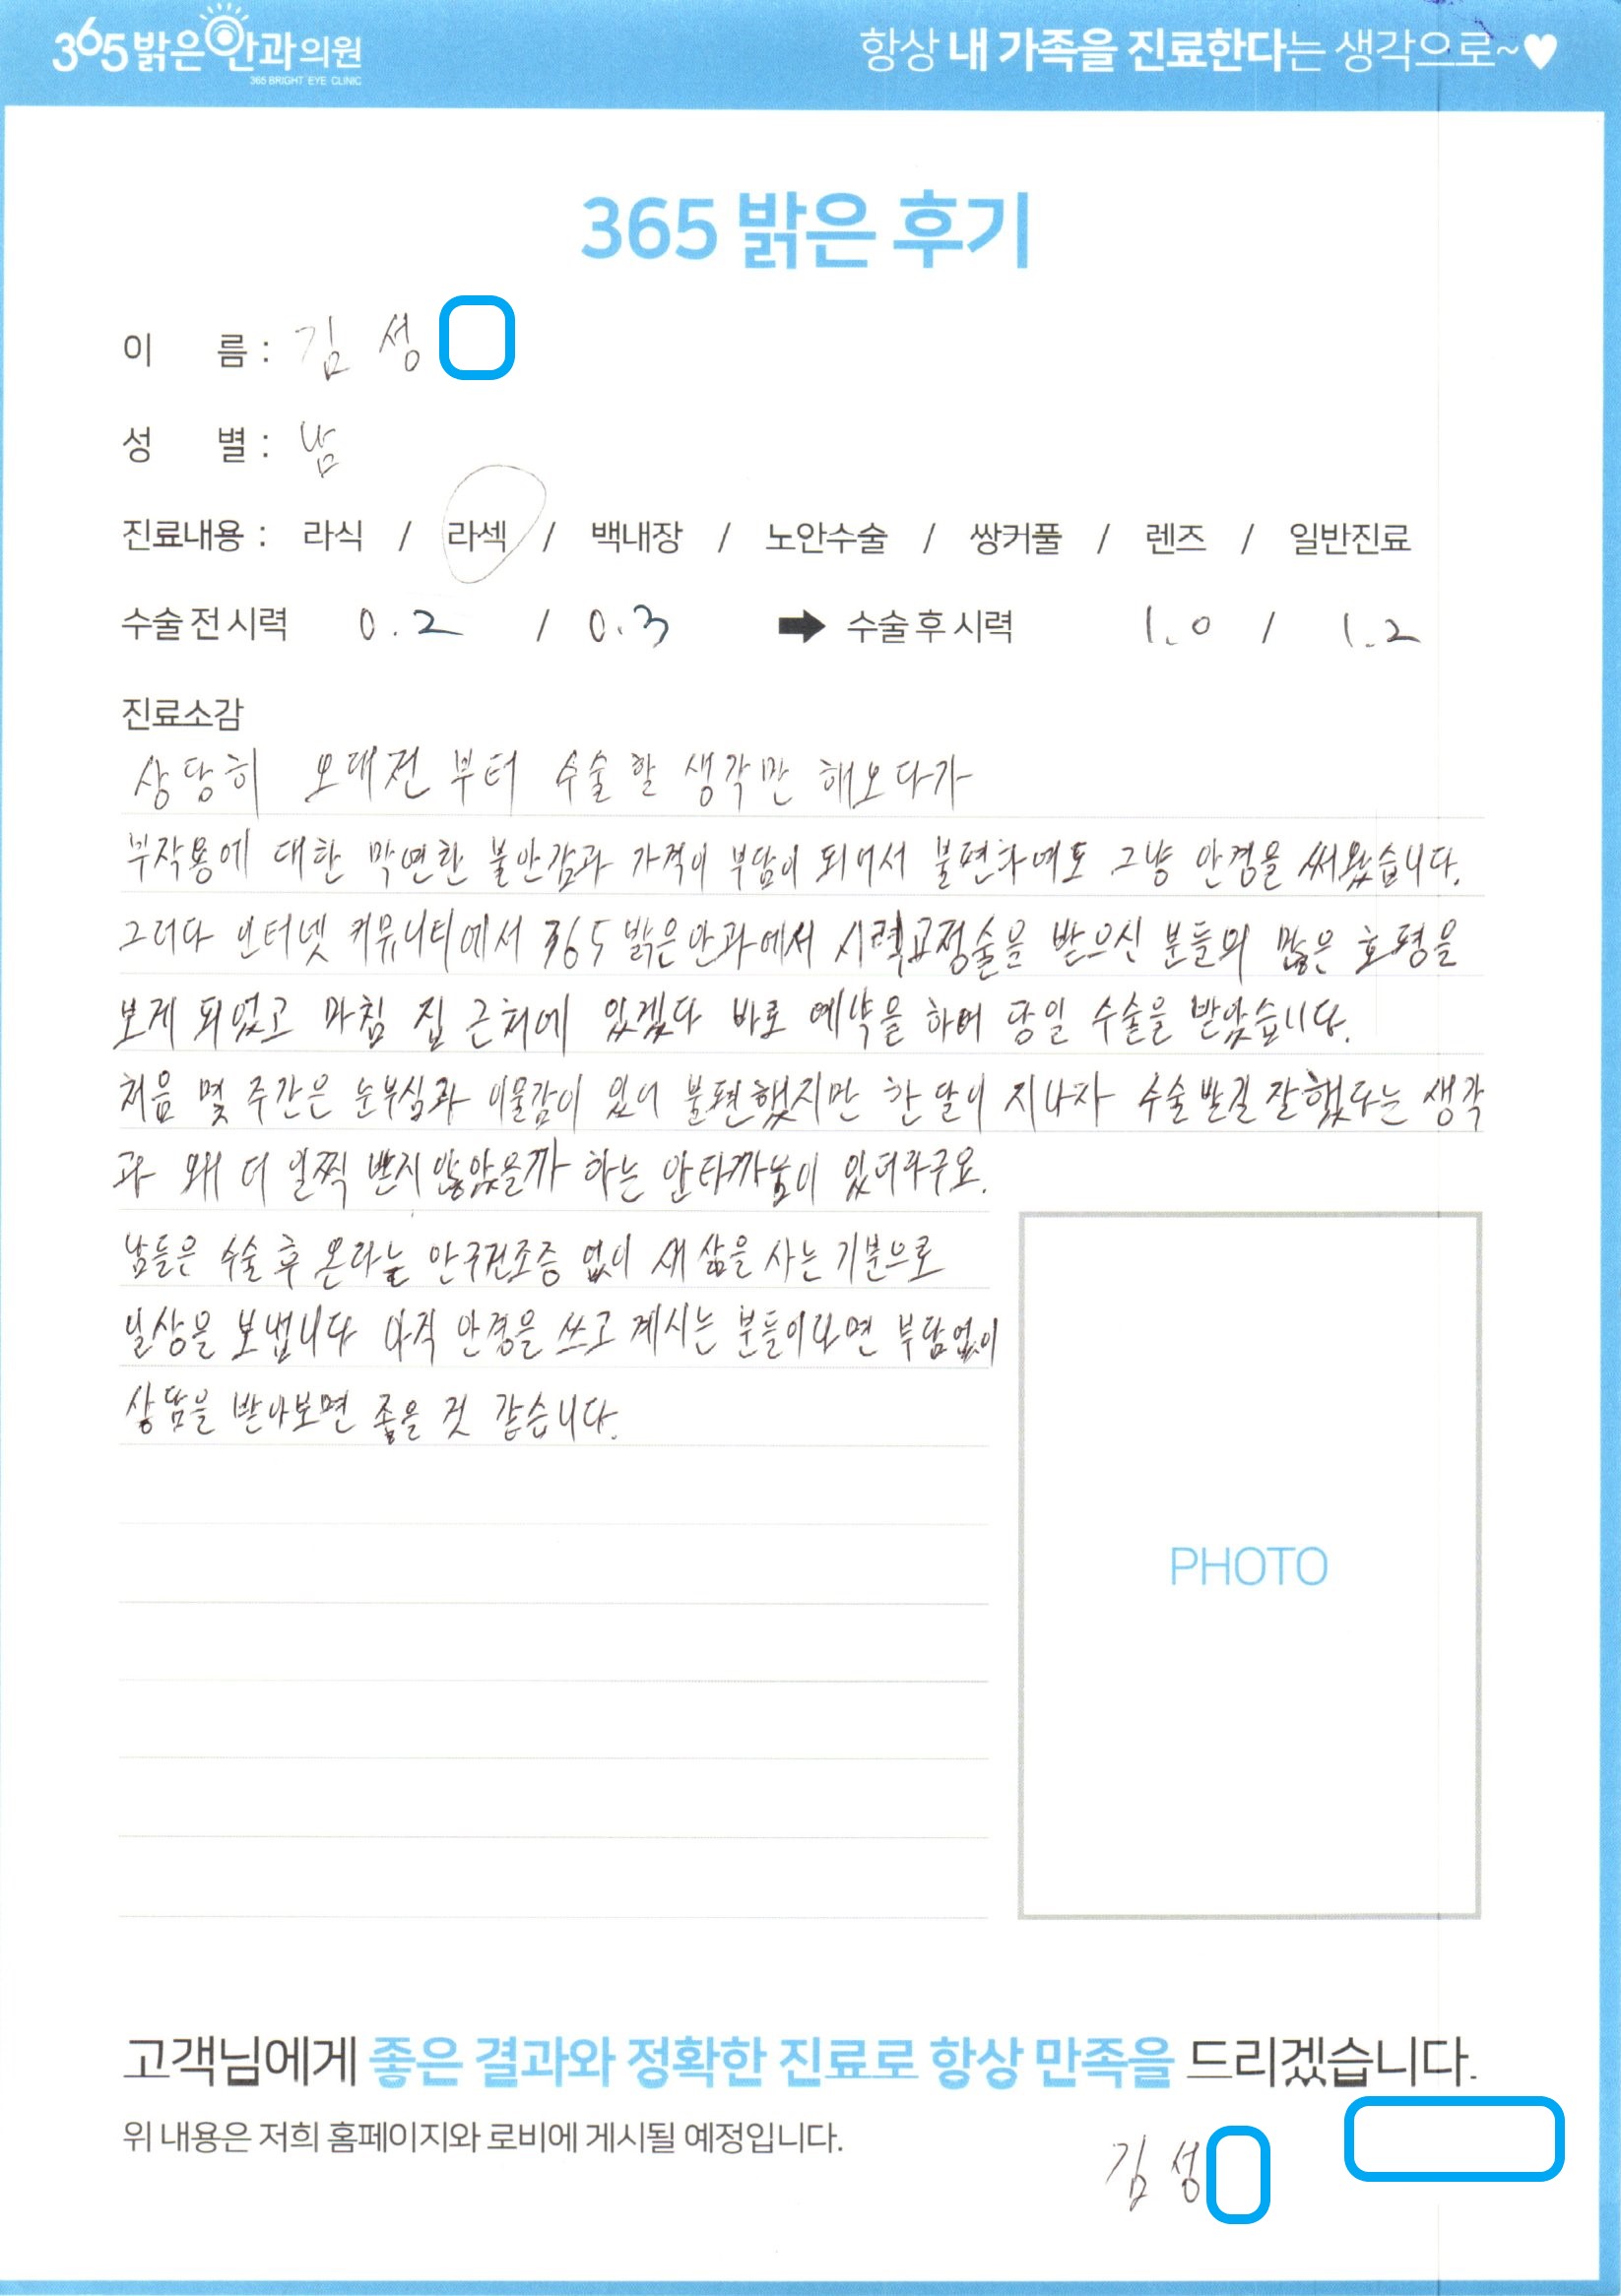 365 밝은안과의원
365 BRIGHT EYE CLINIC
항상 내 가족을 진료한다는 생각으로~♥
365 밝은 후기
이 름 : 김 성
성 별 : 남
진료내용 : 라식 / 라섹 / 백내장 / 노안수술 / 쌍커풀 / 렌즈 / 일반진료
수술 전 시력 0.2 / 0.3 ➡ 수술 후 시력 1.0 / 1.2
진료소감
상당히 오래전 부터 수술할 생각만 해오다가
부작용에 대한 막연한 불안감과 가격이 부담이 되어서 불편하여도 그냥 안경을 써왔습니다.
그러다 인터넷 커뮤니티에서 365 밝은안과에서 시력교정술을 받으신 분들의 많은 호평을
보게 되었고 마침 집 근처에 있겠다 바로 예약을 하여 당일 수술을 받았습니다.
처음 몇 주간은 눈부심과 이물감이 있어 불편했지만 한 달이 지나자 수술받길 잘했다는 생각
과 왜 더 일찍 받지 않았을까 하는 안타까움이 있더라구요.
남들은 수술 후 온다는 안구건조증 없이 새 삶을 사는 기분으로
일상을 보냅니다 아직 안경을 쓰고 계시는 분들이라면 부담없이
상담을 받아보면 좋을 것 같습니다.
PHOTO
고객님에게 좋은 결과와 정확한 진료로 항상 만족을 드리겠습니다.
위 내용은 저희 홈페이지와 로비에 게시될 예정입니다.
김 성